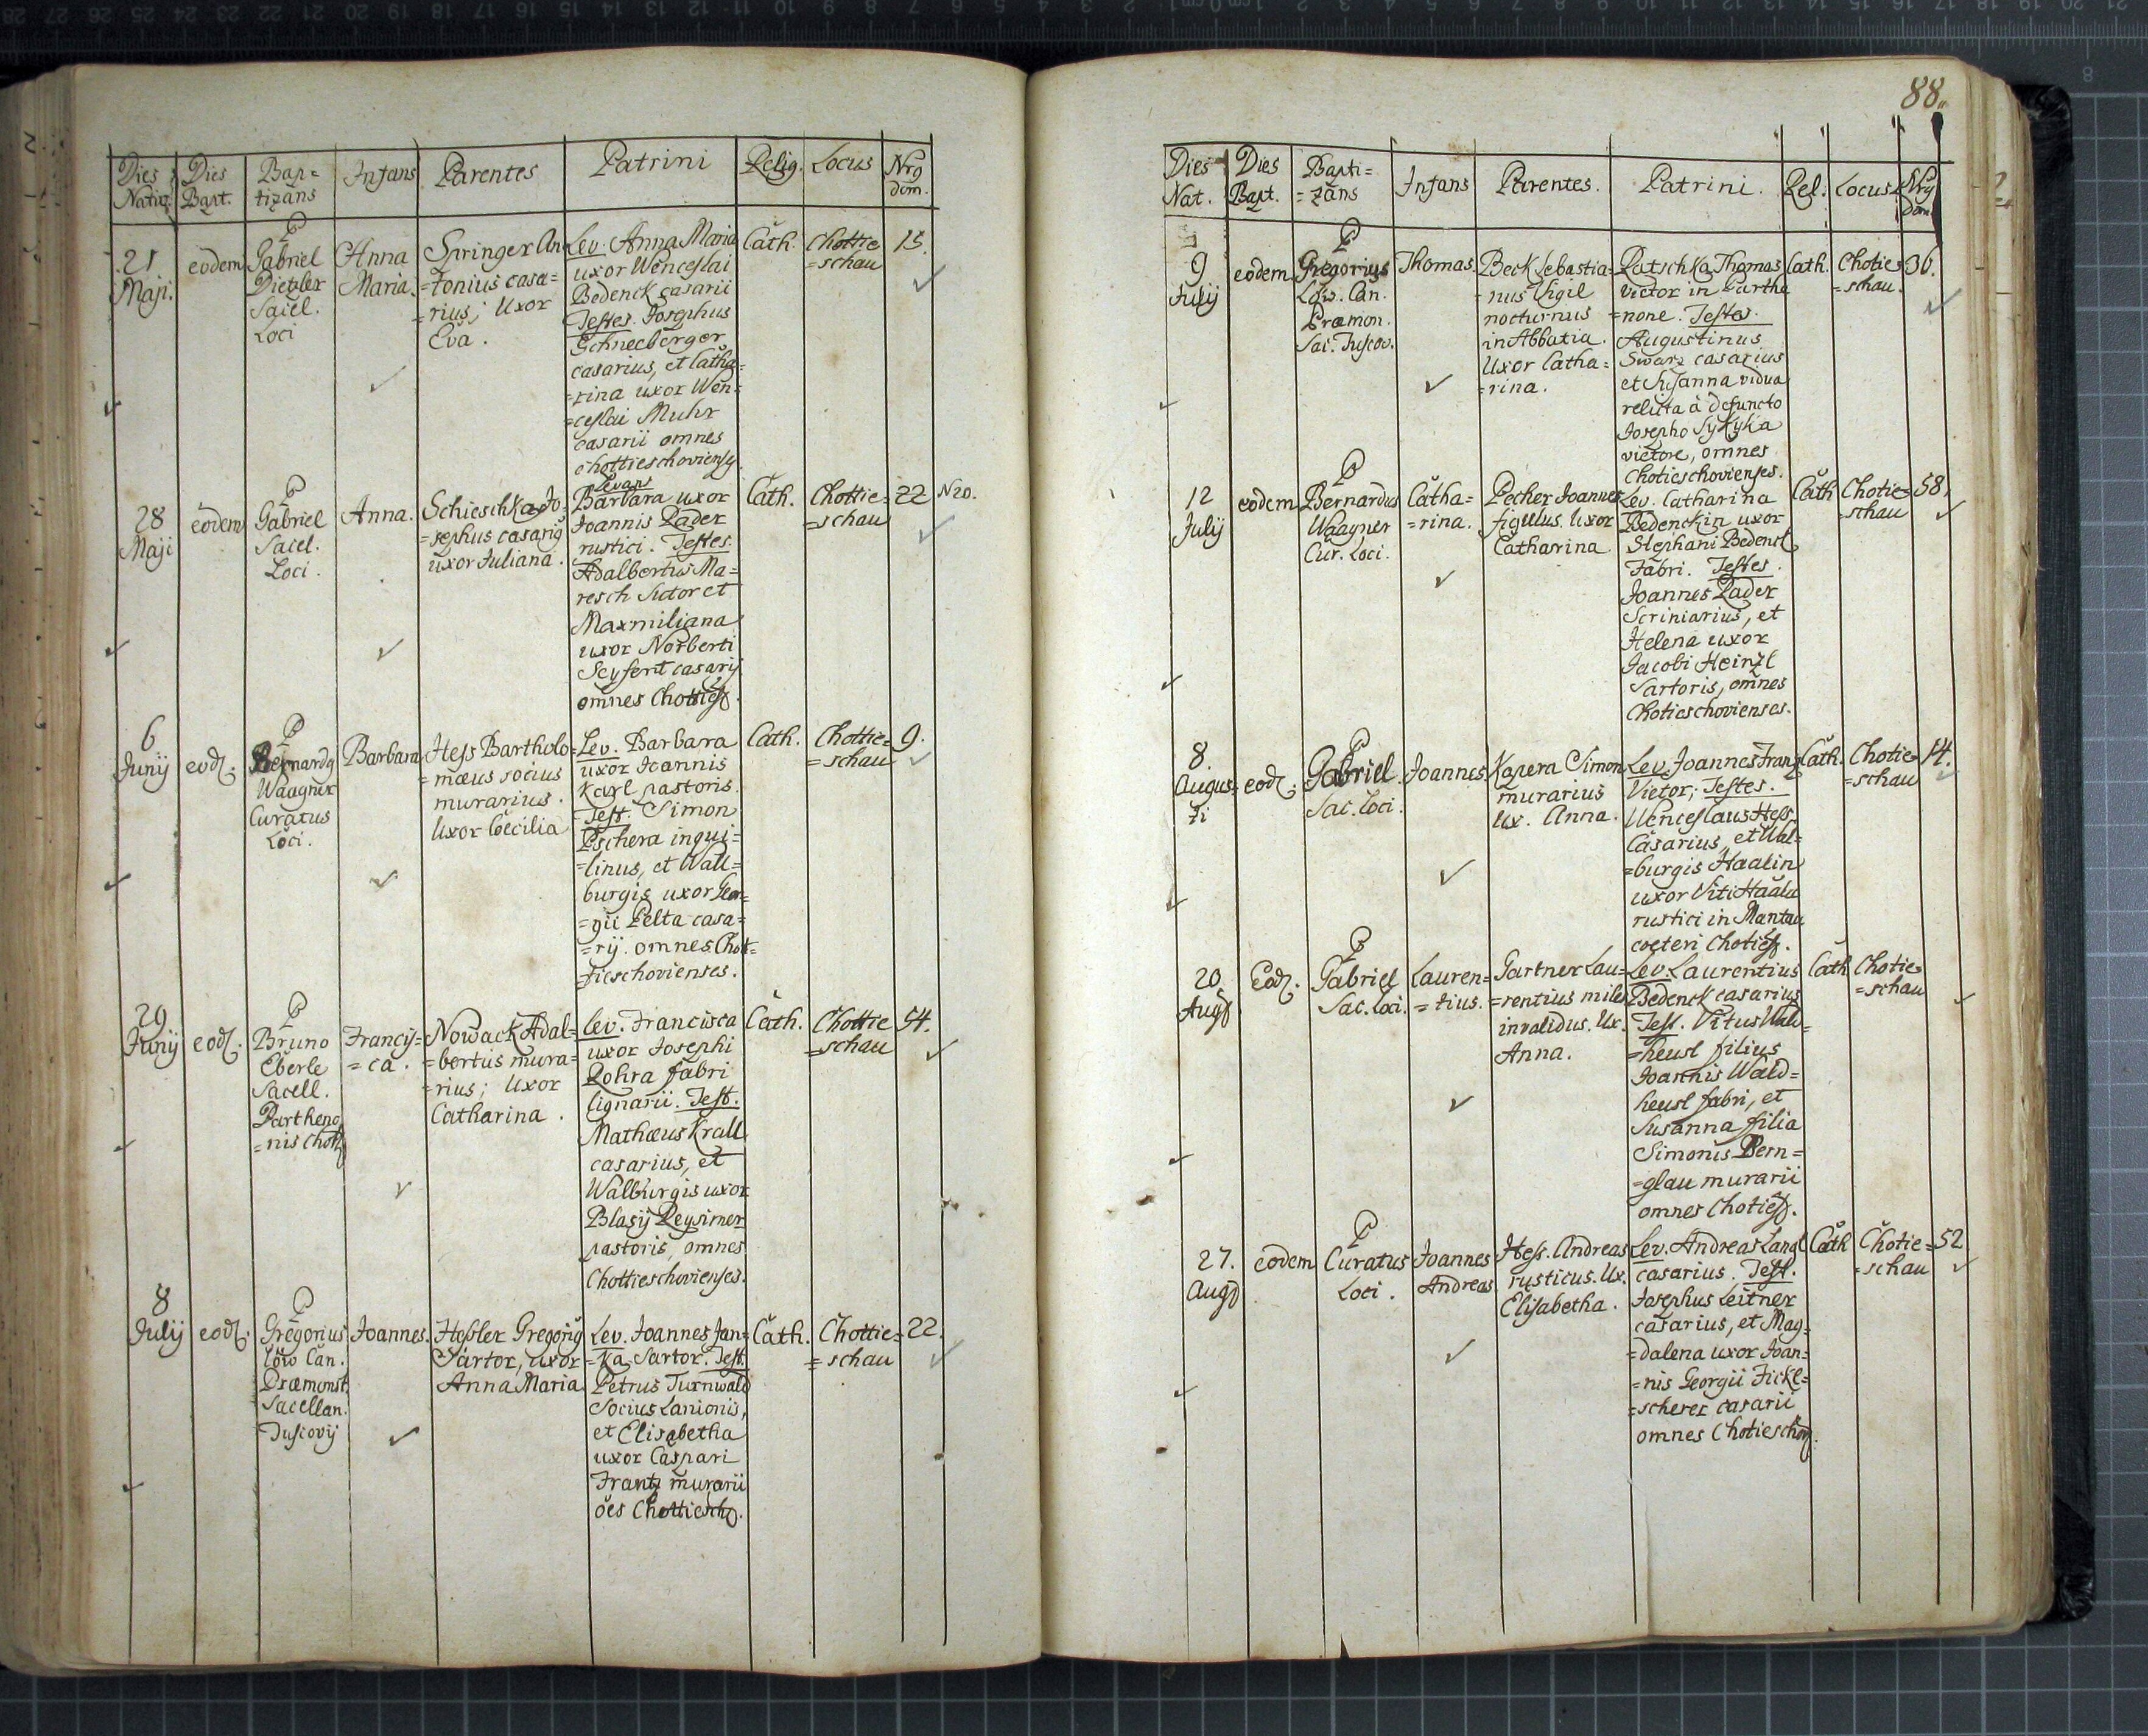 Dies Nativ. Dies Bapt. Bap= tizans Infans Parentes Patrini Relig. Locus Nrg dom.
21 Maji. eodem
P
Gabriel
Dietzler
Sacel.
Loci
Anna
Maria.
Springer An
=tonius casa=
=rius; Uxor
Eva.
Lev. Anna Maria
uxor Wenceslai
Bedenck casarii
Testes. Josephus
Schneeberger
casarius, et Catha=
=rina uxor Wen=
=ceslai Muhr
casarii omnes
chottieschovienses
Cath.
Chottie
=schau
15.
28
Maji
eodem
P
Gabriel
Sacel.
Loci.
Anna.
Schieschka Jo=
=sephus casarig
uxor Juliana.
Levans
Barbara uxor
Joannis Rader
rustici. Testes.
Adalbertus Ma=
resch Sutor et
Maxmiliana
uxor Norberti
Seyfert casarij
omnes Chottiesch.
Cath.
Chottie=
=schau
22 N20.
6
Junij
eod.
P
Bernardg
Waagner
Curatus
Loci.
Barbara
Hess Bartholo=
=mæus socius
murarius.
Uxor Cœcilia
Lev. Barbara
uxor Joannis
Karl pastoris.
Test. Simon
Pschera inqui=
=linus, et Wall=
burgis uxor Geor=
=gii Pelta casa=
=rij. omnes Chot=
tieschovienses.
Cath.
Chottie=
=schau
9.
29
Junij
eod.
P
Bruno
Eberle
Sacell.
Partheno
=nis Chott
Francis=
=ca.
Nowack Adal=
=bertus mura=
=rius; Uxor
Catharina.
Lev. Francisca
uxor Josephi
Rohra fabri
lignarii. Test.
Mathæus Krall
casarius, et
Walburgis uxor
Blasij Reysimer
pastoris, omnes
Chottieschovienses.
Cath.
Chottie
=schau
54.
8
Julij
eod.
P
Gregorius
Löw Can.
Præmonst.
Sacellan.
Tuscovij
Joannes.
Hessler Gregorig
Sartor, uxor
Anna Maria
Lev. Joannes Jan=
=ka Sartor. Test.
Petrus Turnwald
Socius Lanionis,
et Elisabetha
uxor Caspari
Frantz murarii
oes Chottiesch.
Cath.
Chottie=
=schau
22.
88.
Dies Nat. Dies Bapt. Bapti= =zans Infans Parentes. Patrini. Rel. Locus. Nrg dom.
9
Julij
eodem
P
Gregorius
Löw. Can.
Præmon.
Sac. Tuscov.
Thomas.
Beck Sebastia=
=nus Vigil
nocturnus
in Abbatia.
Uxor Catha=
=rina.
Ratschka Thomas
Victor in Parthe
=none. Testes.
Augustinus
Swarz casarius
et Susanna vidua
relicta à defuncto
Josepho Sykyka
vietore, omnes
Chotieschovienses.
Cath.
Chotie=
=schau.
36.
12
Julij
eodem
P
Bernardus
Waagner
Cur. Loci.
Catha=
=rina.
Pecher Joannes
figulus. Uxor
Catharina
Lev. Catharina
Bedenckin uxor
Stephani Bedenck
Fabri. Testes.
Joannes Rader
Scriniarius, et
Helena uxor
Jacobi Heinzl
Sartoris, omnes
Chotieschovienses.
Cath
Chotie=
=schau
58.
8.
Augus=
ti
eod.
P
Gabriel
Sac. Loci.
Joannes.
Kapera Simon
murarius
Ux. Anna.
Lev. Joannes Franz
Vietor; Testes.
Wenceslaus Hess
Casarius, et Wal=
=burgis Haalin
uxor Viti Haala
rustici in Mantau
cœteri Chotiesch.
Cath.
Chotie=
=schau
14.
20
Augs
Eod.
P
Gabriel
Sac. Loci.
Lauren=
=tius.
Gartner Lau=
=rentius miles
invalidus. Ux.
Anna.
Lev. Laurentius
Bedenck casarius
Test. Vitus Wald=
=heusl filius
Joannis Wald=
heusl fabri, et
Susanna filia
Simonis Bern=
=glau murarii
omnes Chotiesch.
Cath
Chotie=
=schau
27.
Augs
eodem
P
Curatus
Loci.
Joannes
Andreas
Hess. Andreas
rusticus. Ux.
Elisabetha.
Lev. Andreas Langl
casarius. Test.
Josephus Leitner
casarius, et Mag=
=dalena uxor Joan=
=nis Georgii Fickl=
=scherer casarii
omnes Chotieschov.
Cath
Chotie=
=schau
52